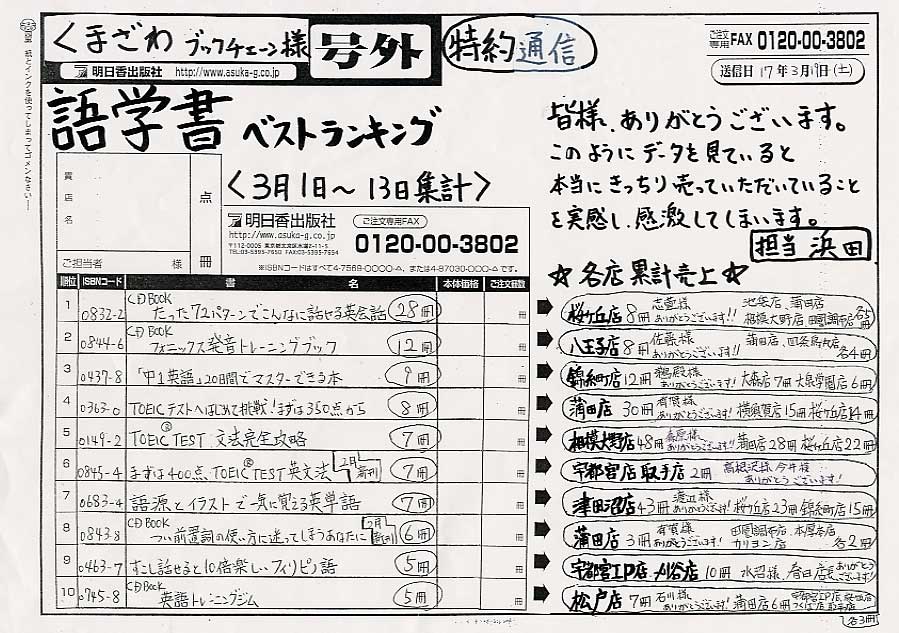 くまざわ ブックチェーン様
号外
特約通信
ご注文専用FAX 0120-00-3802
明日香出版社 http://www.asuka-g.co.jp
送信日 17年3月19日(土)
紙とインクを使ってしまってゴメンなさい
語学書 ベストランキング
〈3月1日～13日集計〉
皆様、ありがとうございます。
このようにデータを見ていると
本当にきっちり売っていただいていること
を実感し、感激してしまいます。
担当 浜田
貴店名
点
冊
ご担当者 様
明日香出版社 ご注文専用FAX
http://www.asuka-g.co.jp
0120-00-3802
〒112-0005 東京都文京区水道2-11-5
TEL03-5395-7650 FAX:03-5395-7654
※ISBNコードはすべて4-7569-○○○○-△、または4-87030-○○○-△です。
順位 ISBNコード 書名 本体価格 ご注文冊数
1 0832-2 CD BOOK たった72パターンでこんなに話せる英会話 28冊 冊
2 0844-6 CD BOOK フォニックス発音トレーニングブック 12冊 冊
3 0437-8 「中1英語」20日間でマスターできる本 9冊 冊
4 0363-0 TOEICテストへはじめて挑戦!まずは350点から 8冊 冊
5 0149-2 TOEIC® TEST 文法完全攻略 7冊 冊
6 0845-4 まずは400点、TOEIC® TEST英文法 2月新刊 7冊 冊
7 0683-4 語源とイラストで一気に覚える英単語 7冊 冊
8 0843-8 CD BOOK つい前置詞の使い方に迷ってしまうあなたに 2月新刊 6冊 冊
9 0463-7 すこし話せると10倍楽しいフィリピノ語 5冊 冊
10 0745-8 CD BOOK 英語トレーニングジム 5冊 冊
☆各店累計売上☆
桜ヶ丘店 8冊 志萱様 ありがとうございます!! 池袋店、蒲田店 相模大野店、田園調布店 各5冊
八王子店 8冊 佐藤様 ありがとうございます!! 蒲田店、四条烏丸店 各4冊
錦糸町店 12冊 ありがとうございます!! 大森店7冊 大泉学園店6冊
蒲田店 30冊 有賀様 ありがとうございます!! 横須賀店15冊 桜ヶ丘店14冊
相模大野店 48冊 ありがとうございます!! 蒲田店28冊 桜ヶ丘店22冊
宇都宮店 取手店 2冊 高根沢様 今井様 ありがとうございます!
津田沼店 43冊 渡辺様 ありがとうございます! 桜ヶ丘店23冊 錦糸町店15冊
蒲田店 3冊 有賀様 ありがとうございます! 田園調布店、本厚木店 カリヨン店 各2冊
宇都宮IP店、刈谷店 10冊 水沼様、春日店長 ありがとうございます!
松戸店 7冊 石川様 ありがとうございます! 蒲田店6冊 宇都宮IP店、桜ヶ丘店 つくば店、取手店 各3冊